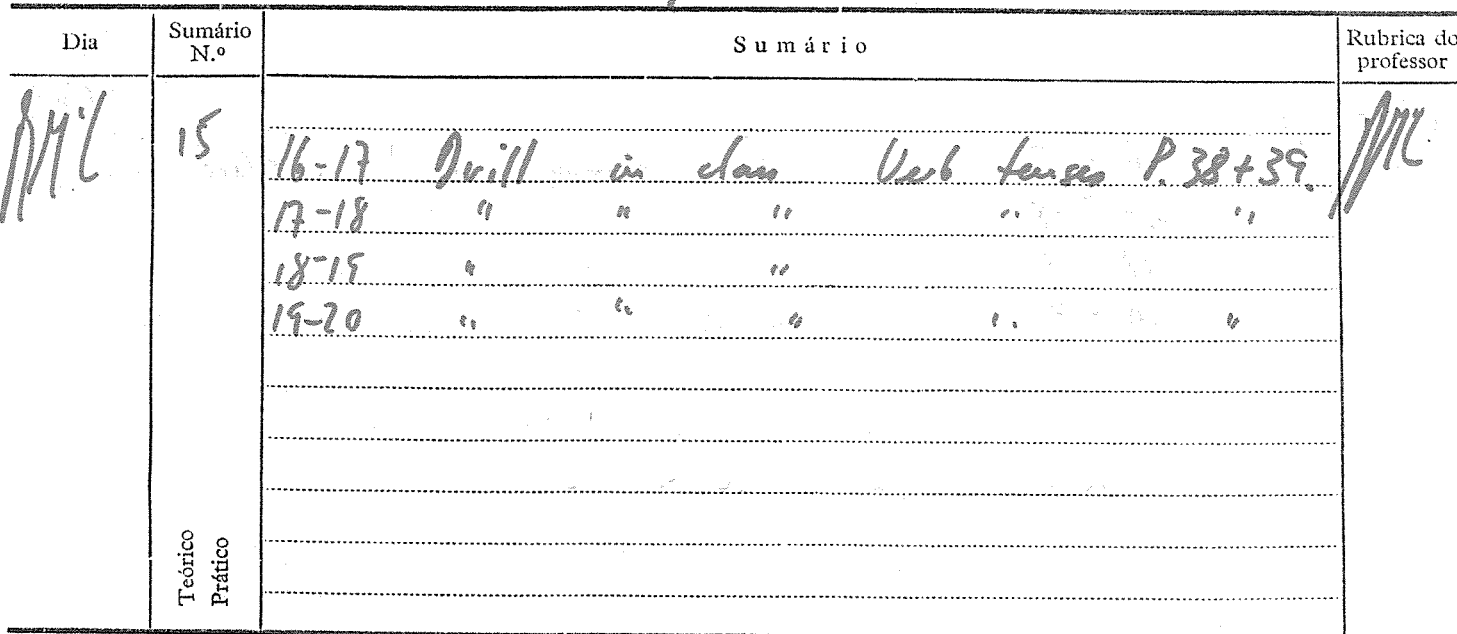 Dia Sumário N.º Sumário Rubrica do professor
15
16-17 Drill in class Verb tenses P. 38+39.
17-18 " " " " "
18-19 " "
19-20 " " " " "
Teórico
Prático